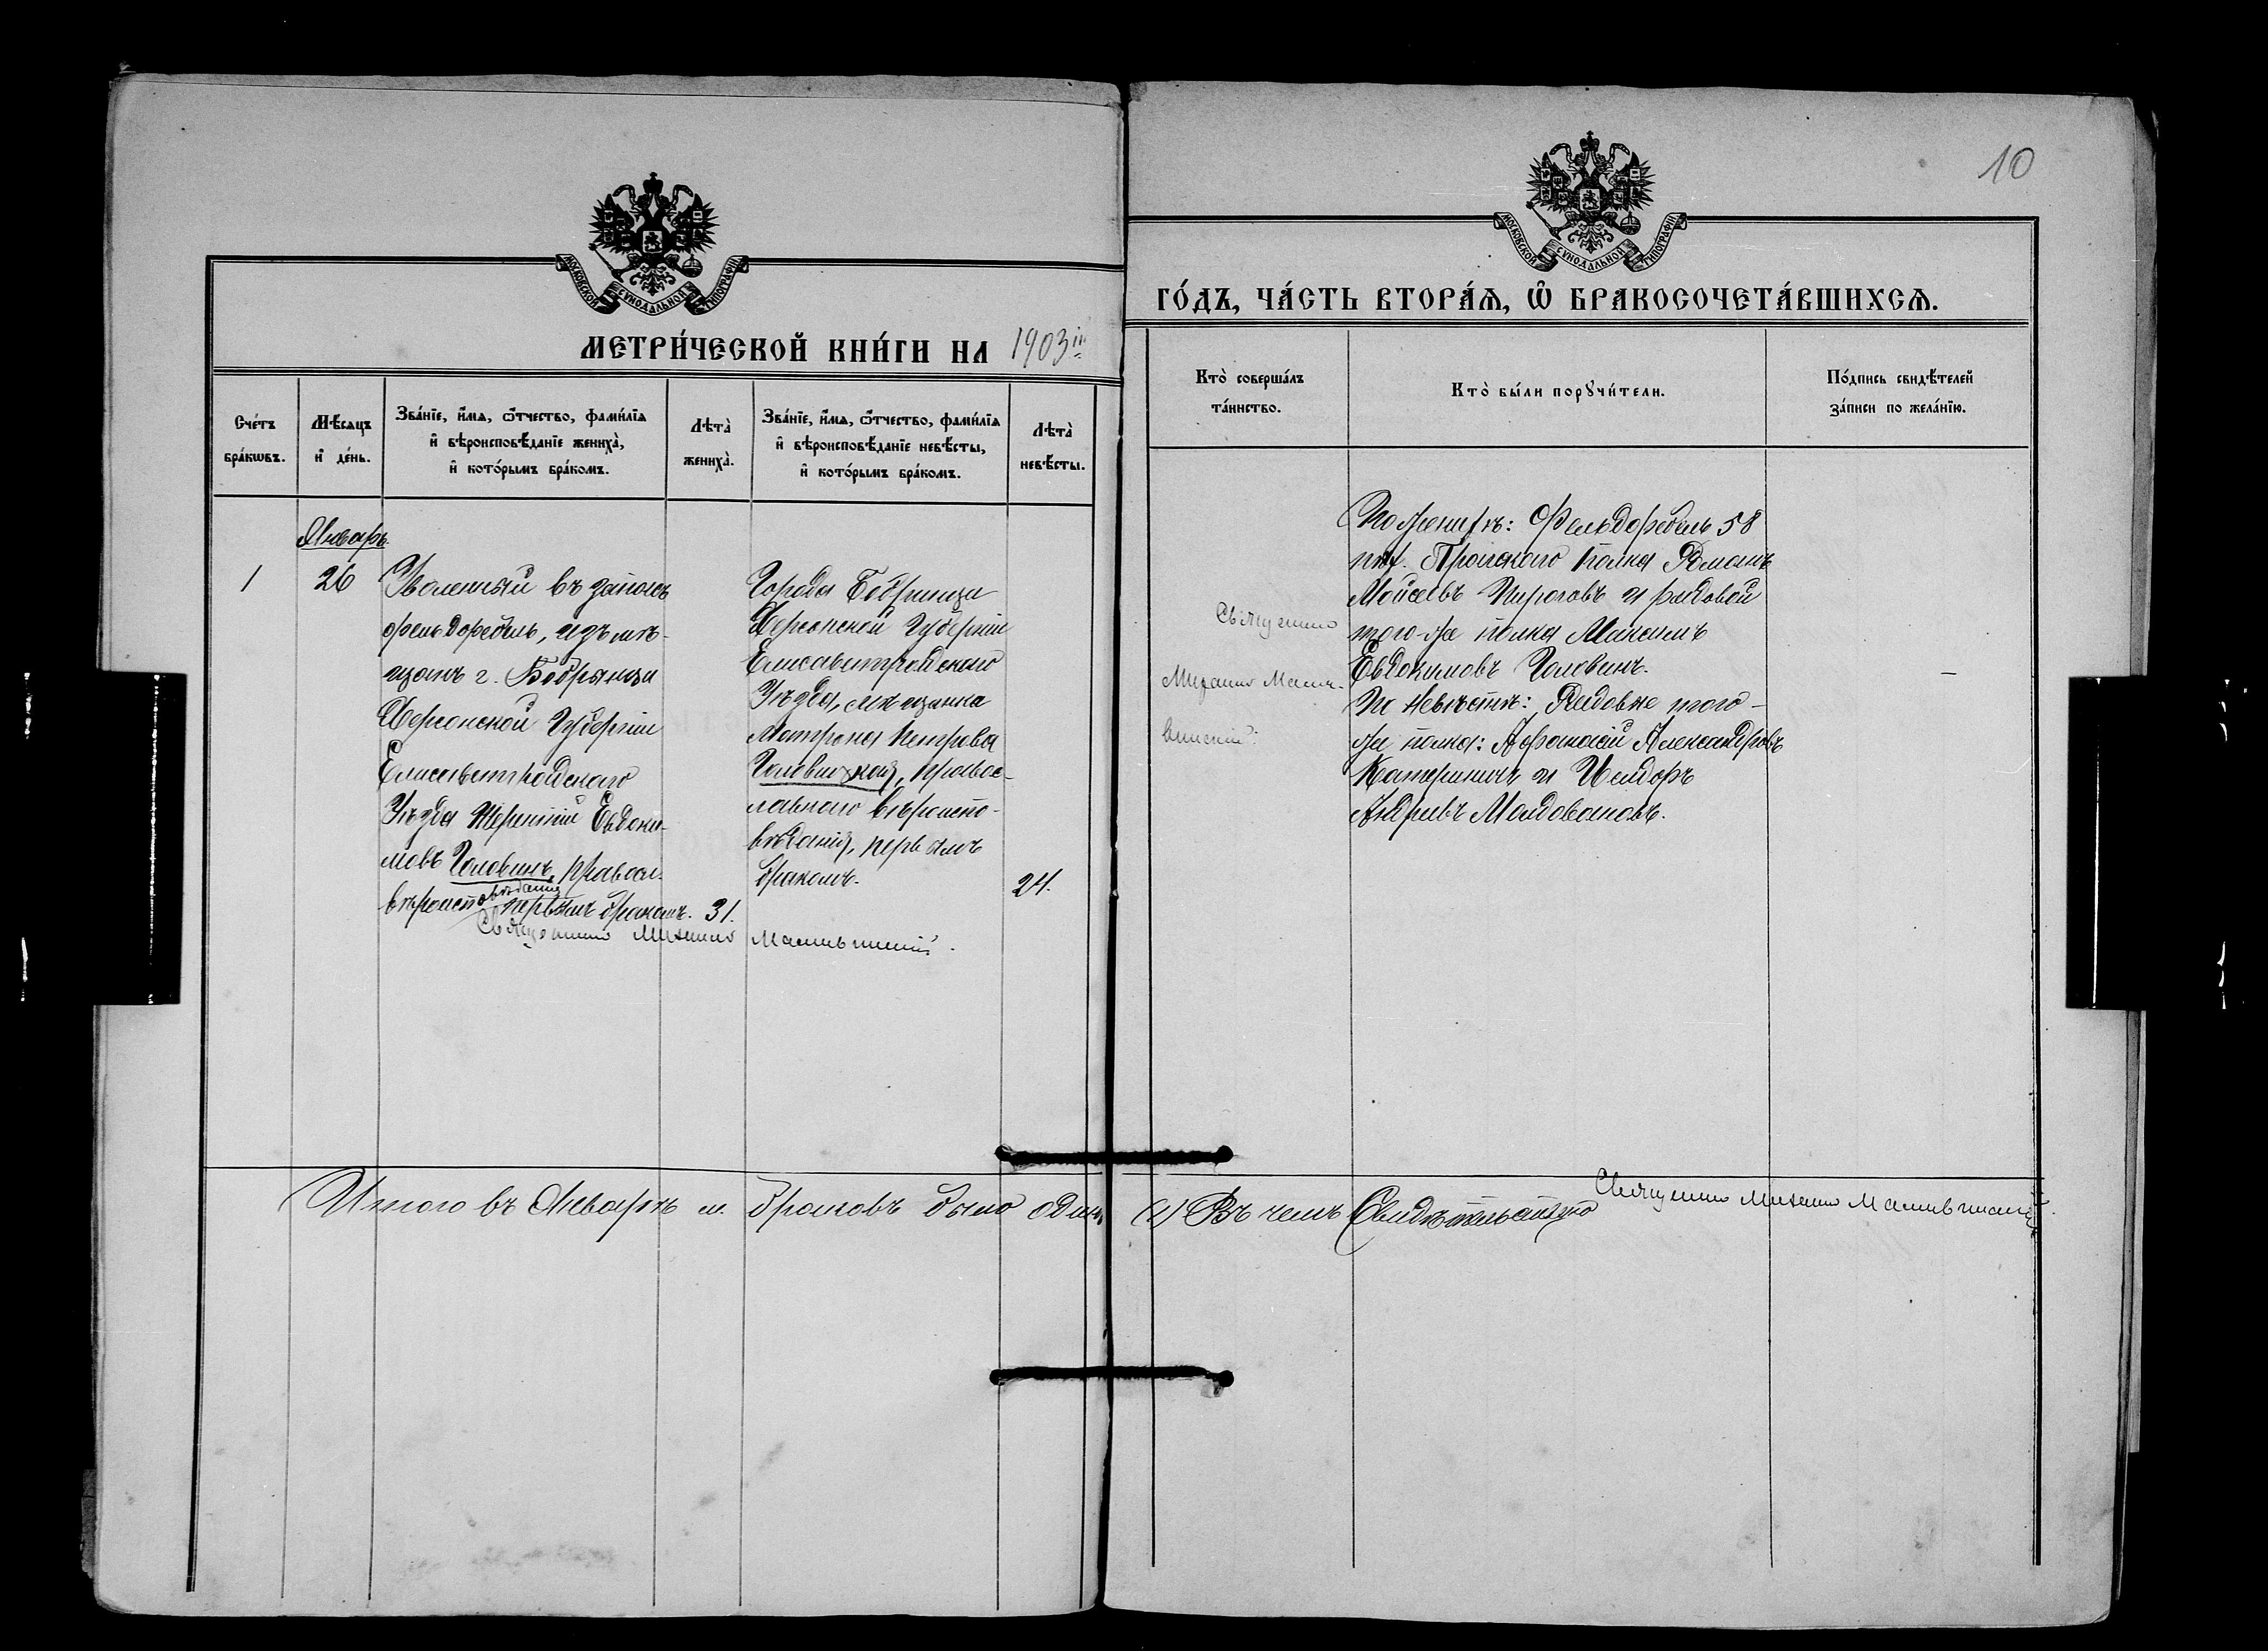 10
МОСКОВСКОЙ СѴНОДАЛЬНОЙ ТИПОГРАФІИ
МОСКОВСКОЙ СѴНОДАЛЬНОЙ ТИПОГРАФІИ
МЕТРИ́ЧЕСКОЙ КНИ́ГИ НА 1903й
ГО́ДЪ, ЧА́СТЬ ВТОРА́Ѧ, Ѽ БРАКОСОЧЕТА́ВШИХСѦ.
Сче́тъ
бра́кωвъ.
Мѣ́сяцъ
и҆ де́нь.
Зва́нїе, и҆́мѧ, ѻ҆́тчество, фами́лїѧ
и҆ вѣроисповѣ́данїе жениха̀,
и҆ кото́рымъ бра́комъ.
Лѣта̀
жениха̀.
Зва́нїе, и҆́мѧ, ѻ҆́тчество, фами́лїѧ
и҆ вѣроисповѣ́данїе невѣ́сты,
и҆ кото́рымъ бра́комъ.
Лѣта̀
невѣ́сты.
Кто̀ соверша́лъ
та́инство.
Кто̀ бы́ли порꙋчи́тели.
По́дпись свидѣ́телей
за́писи по жела́нїю.
Январь.
1
26
Уволенный въ запасъ
фельдфебель, изъ мѣ-
щанъ г. Бобринца
Херсонской Губерніи
Елисаветградскаго
Уѣзда Терентій Евдоки-
мовъ Головинъ, правосл.
вѣроисповѣданія
первымъ бракомъ.
31.
Города Бобринца
Херсонской Губерніи
Елисаветградскаго
Уѣзда, мѣщанка
Матрона Петрова
правос-
лавнаго вѣроиспо-
вѣданія, первымъ
бракомъ.
24.
Священникъ Михаилъ
Священникъ
Михаилъ
По женихѣ: Фельдфебель 58
пѣх. Прагскаго полка Романъ
Моисеевъ Пироговъ и рядовой
того-же полка Максимъ
Евдокимовъ Головинъ.
По невѣстѣ: Рядовые того-
же полка: Афанасій Александровъ
и Исидоръ
Андреевъ Молдовановъ.
–
Итого въ Январѣ м. браковъ было одинъ
(1) Въ чемъ Свидѣтельствую
Священникъ Михаилъ